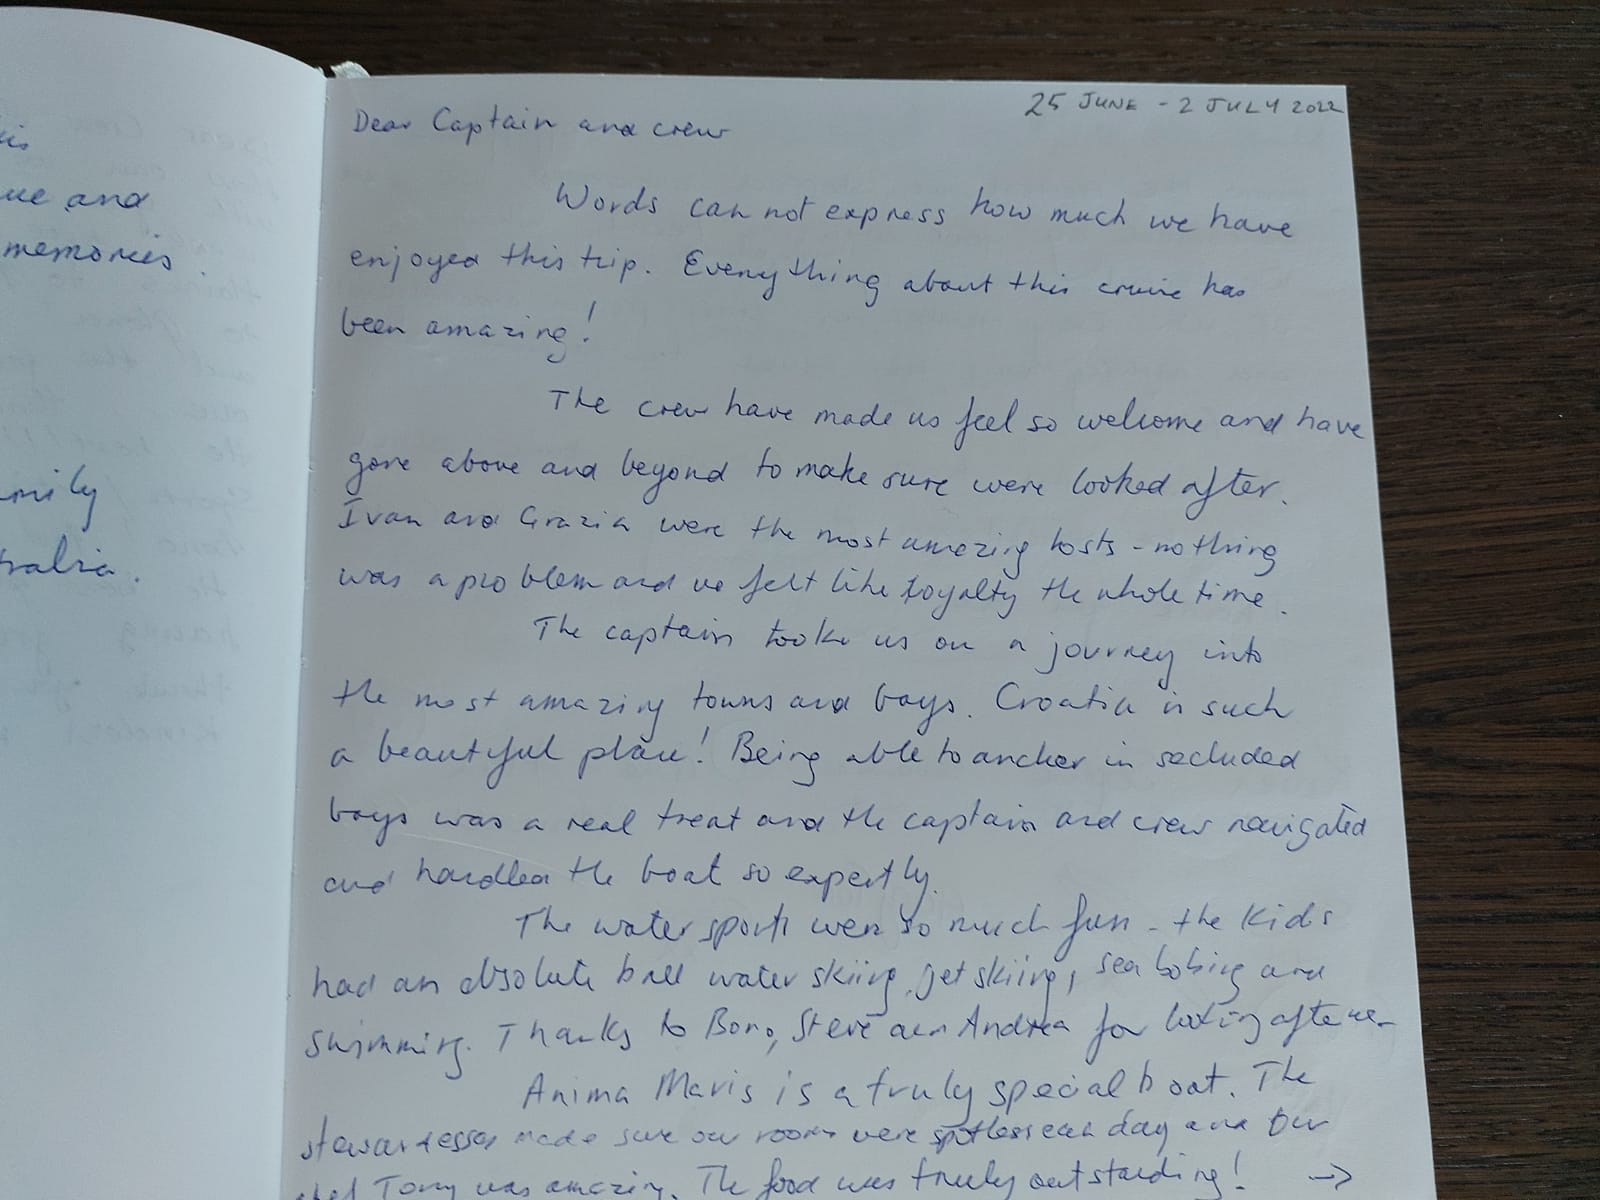 is
ue and
memories
mily
ralia.
25 JUNE - 2 JULY 2022
Dear Captain and crew
Words can not express how much we have
enjoyed this trip. Everything about this cruise has
been amazing!
The crew have made us feel so welcome and have
gone above and beyond to make sure were looked after.
Ivan and Grazia were the most amazing hosts - nothing
was a problem and we felt like royalty the whole time.
The captain tooke us on a journey into
the most amazing towns and bays. Croatia is such
a beautiful place! Being able to ancher in secluded
bays was a real treat and the captain and crew navigated
and handled the boat so expertly.
The water sports were so much fun - the kids
had an absolute ball water skiing, jet skiing, sea bobing and
swimming. Thanks to Boro, Steve and Andrea for looking after
Anima Maris is a truly special boat. The
stewardesses made sure our rooms were spotless each day and our
chef Tony was amazing. The food was truly outstanding! →